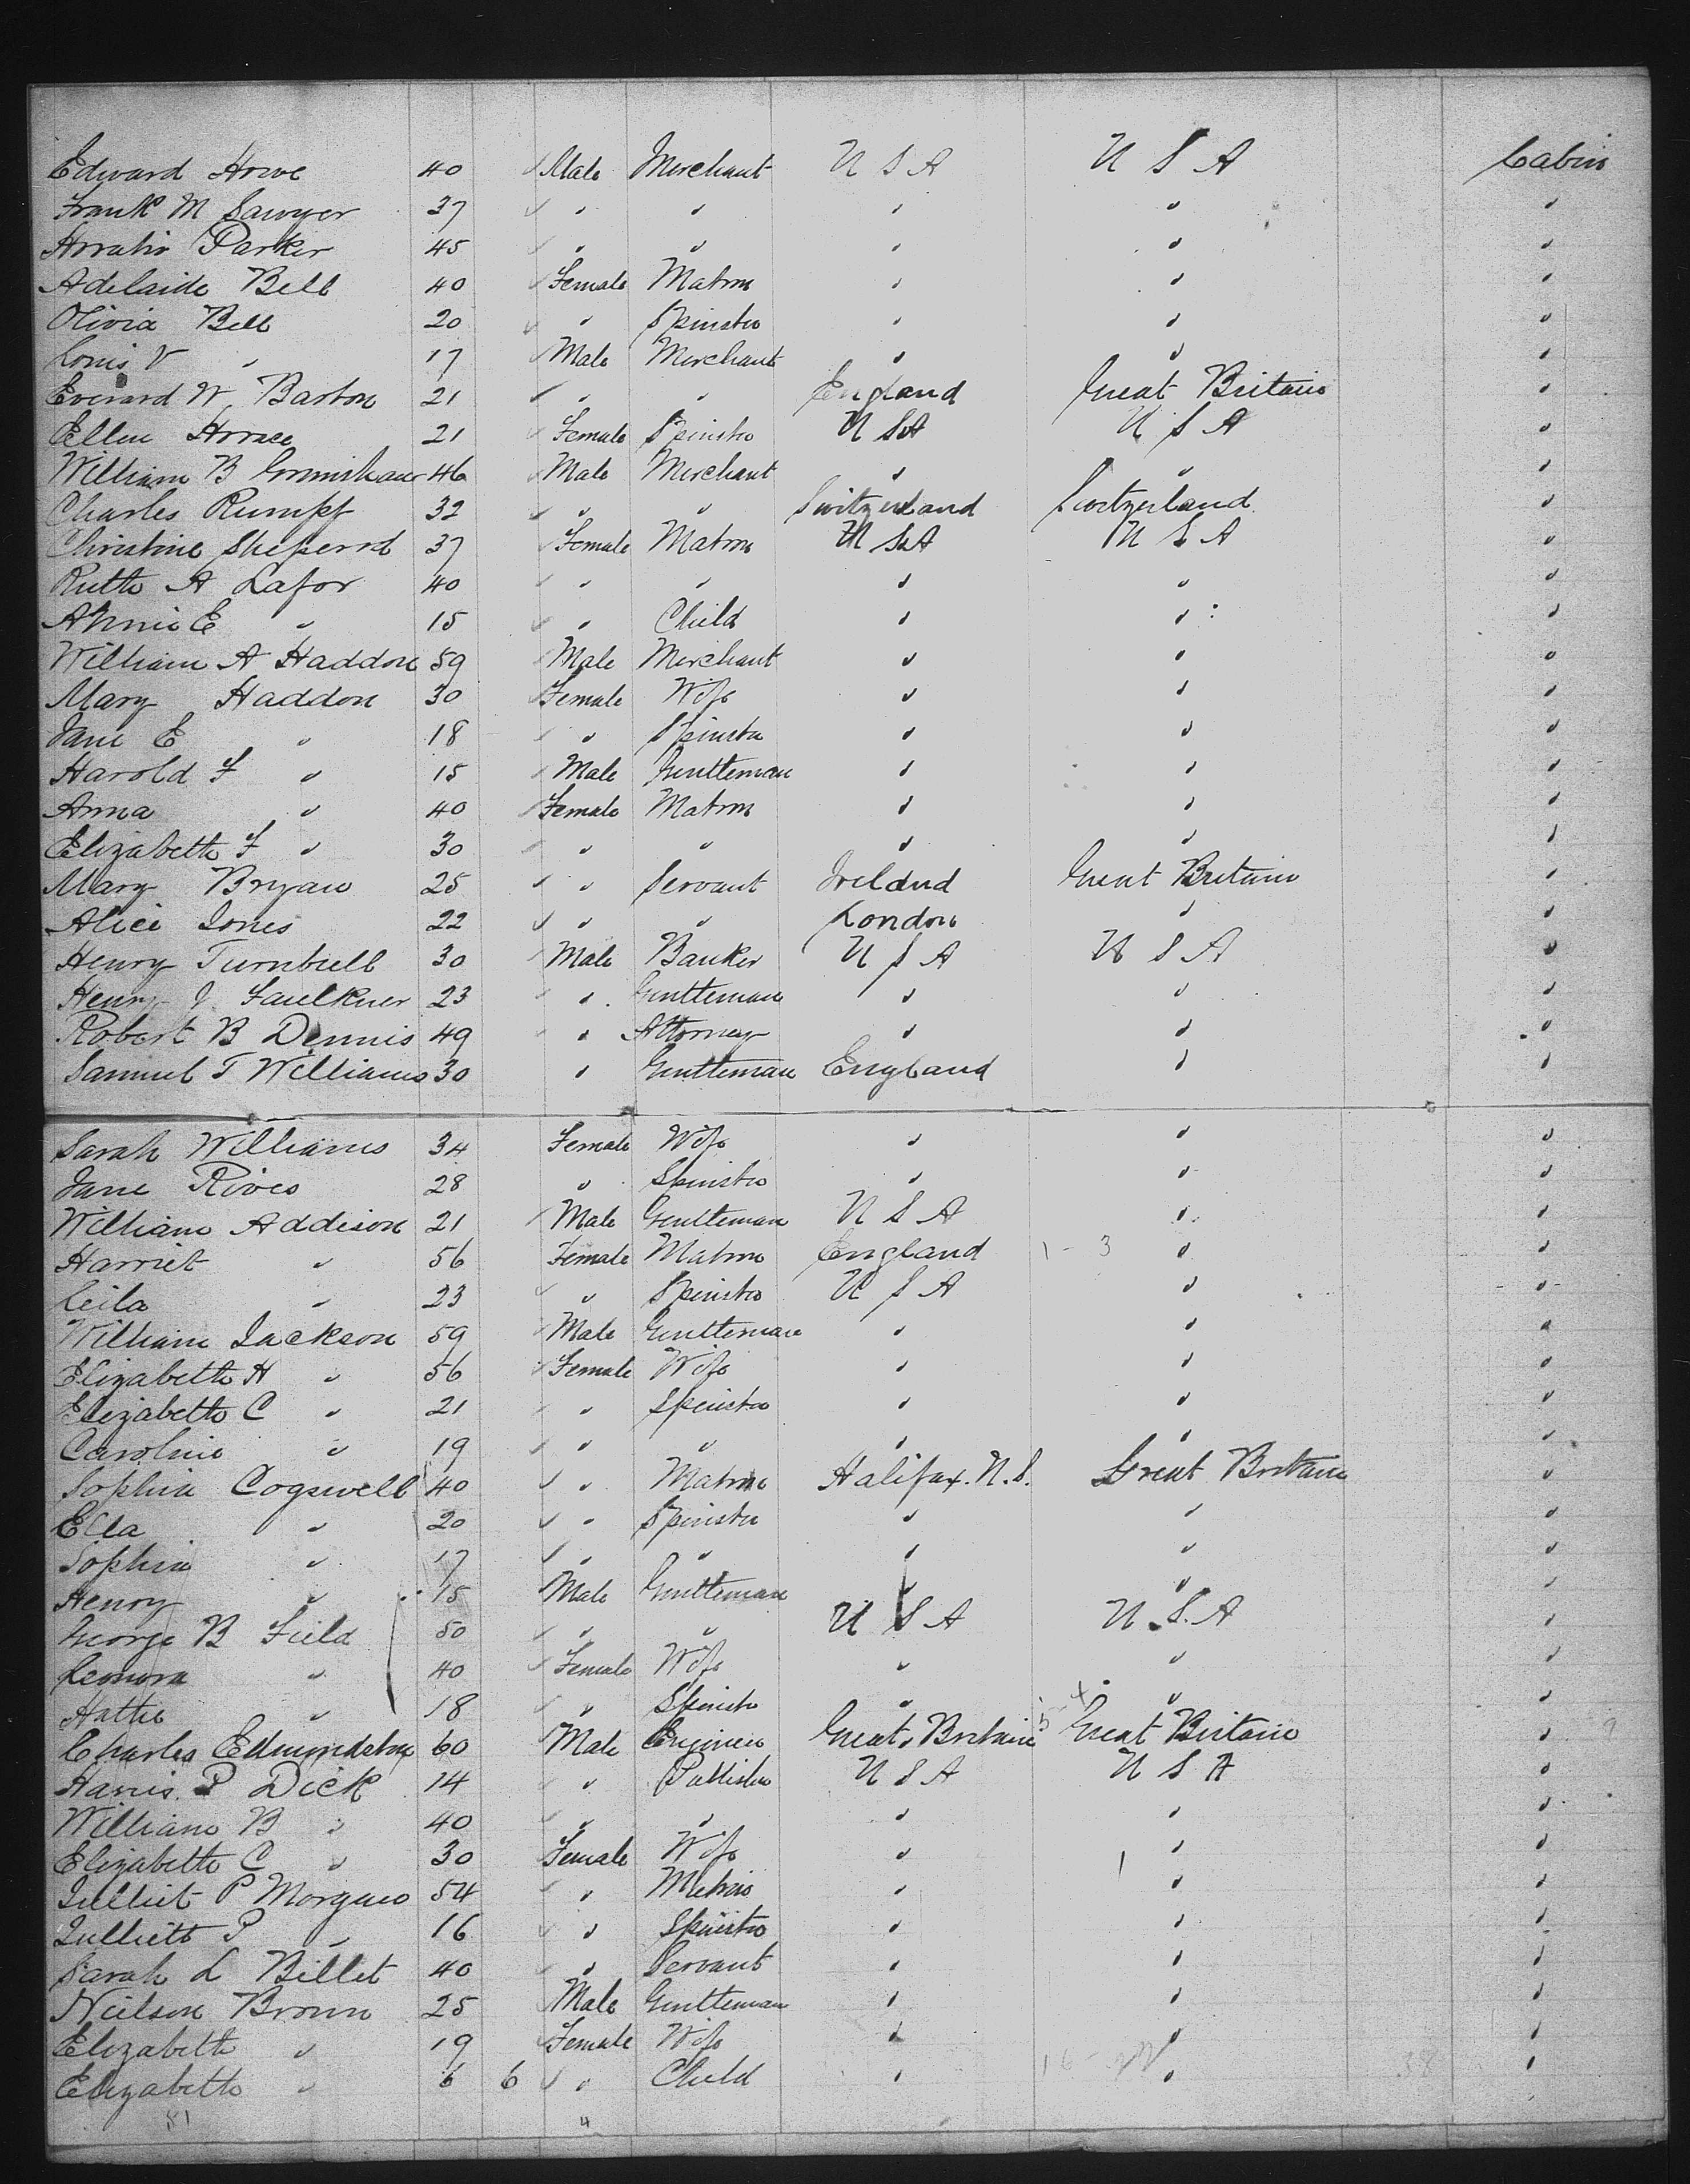 Edward Howe 40 Male Merchant U S A U S A Cabin
Frank M Sawyer 37 " " " " "
Horatio Parker 45 " " " " "
Adelaide Bell 40 Female Matron " " "
Olivia Bell 20 " Spinster " " "
Louis V " 17 Male Merchant " " "
Everard W Barton 21 " " England Great Britain "
Ellen Horace 21 Female Spinster U S A U S A "
William B Grimshaw 46 Male Merchant " " "
Charles Rumpf 32 " " Switzerland Switzerland "
Christine Sheperd 37 Female Matron U S A U S A "
Ruth A Lafor 40 " " " " "
Annie E " 15 " Child " " "
William A Haddon 59 Male Merchant " " "
Mary Haddon 30 Female Wife " " "
Jane E " 18 " Spinster " " "
Harold F " 15 Male Gentleman " " "
Anna " 40 Female Matron " " "
Elizabeth F " 30 " " " " "
Mary Bryan 25 " Servant Ireldnd Great Britain "
Alice Jones 22 " " London " "
Henry Turnbull 30 Male Banker U S A U S A "
Henry J. Faulkner 23 " Gentleman " " "
Robert B Dennis 49 " Attorney " " "
Samuel T Williams 30 " Gentleman England " "
Sarah Williams 34 Female Wife " " "
Jane Rives 28 " Spinster " " "
William Addison 21 Male Gentleman U S A " "
Harriet " 56 Female Matron England 1 - 3 " "
Leila " 23 " Spinster U S A " "
William Jackson 59 Male Gentleman " " "
Elizabeth H " 56 Female Wife " " "
Elizabeth C " 21 " Spinster " " "
Caroline " 19 " " " " "
Sophia Cogswell 40 " Matron Halifax. N. S. Great Britain "
Ella " 20 " Spinster " " "
Sophia " 17 " " " " "
Henry " 15 Male Gentleman " " "
George B Field 50 " " U S A U. S. A "
Leonora " 40 Female Wife " " "
Hattie " 18 " Spinster " " "
Charles Edmondston 60 Male Engineer Great Britain Great Britain "
Harris P Dick 14 " Publisher U S A U S A "
William B " 40 " " " " "
Elizabeth C " 30 Female Wife " " "
Julliet P Morgan 54 " Matron " " "
Julliett P " 16 " Spinster " " "
Sarah L Billet 40 " Servant " " "
Neilson Brown 25 Male Gentleman " " "
Elizabeth " 19 Female Wife " " "
Elizabeth " 6 6 " Child " " "
51 4